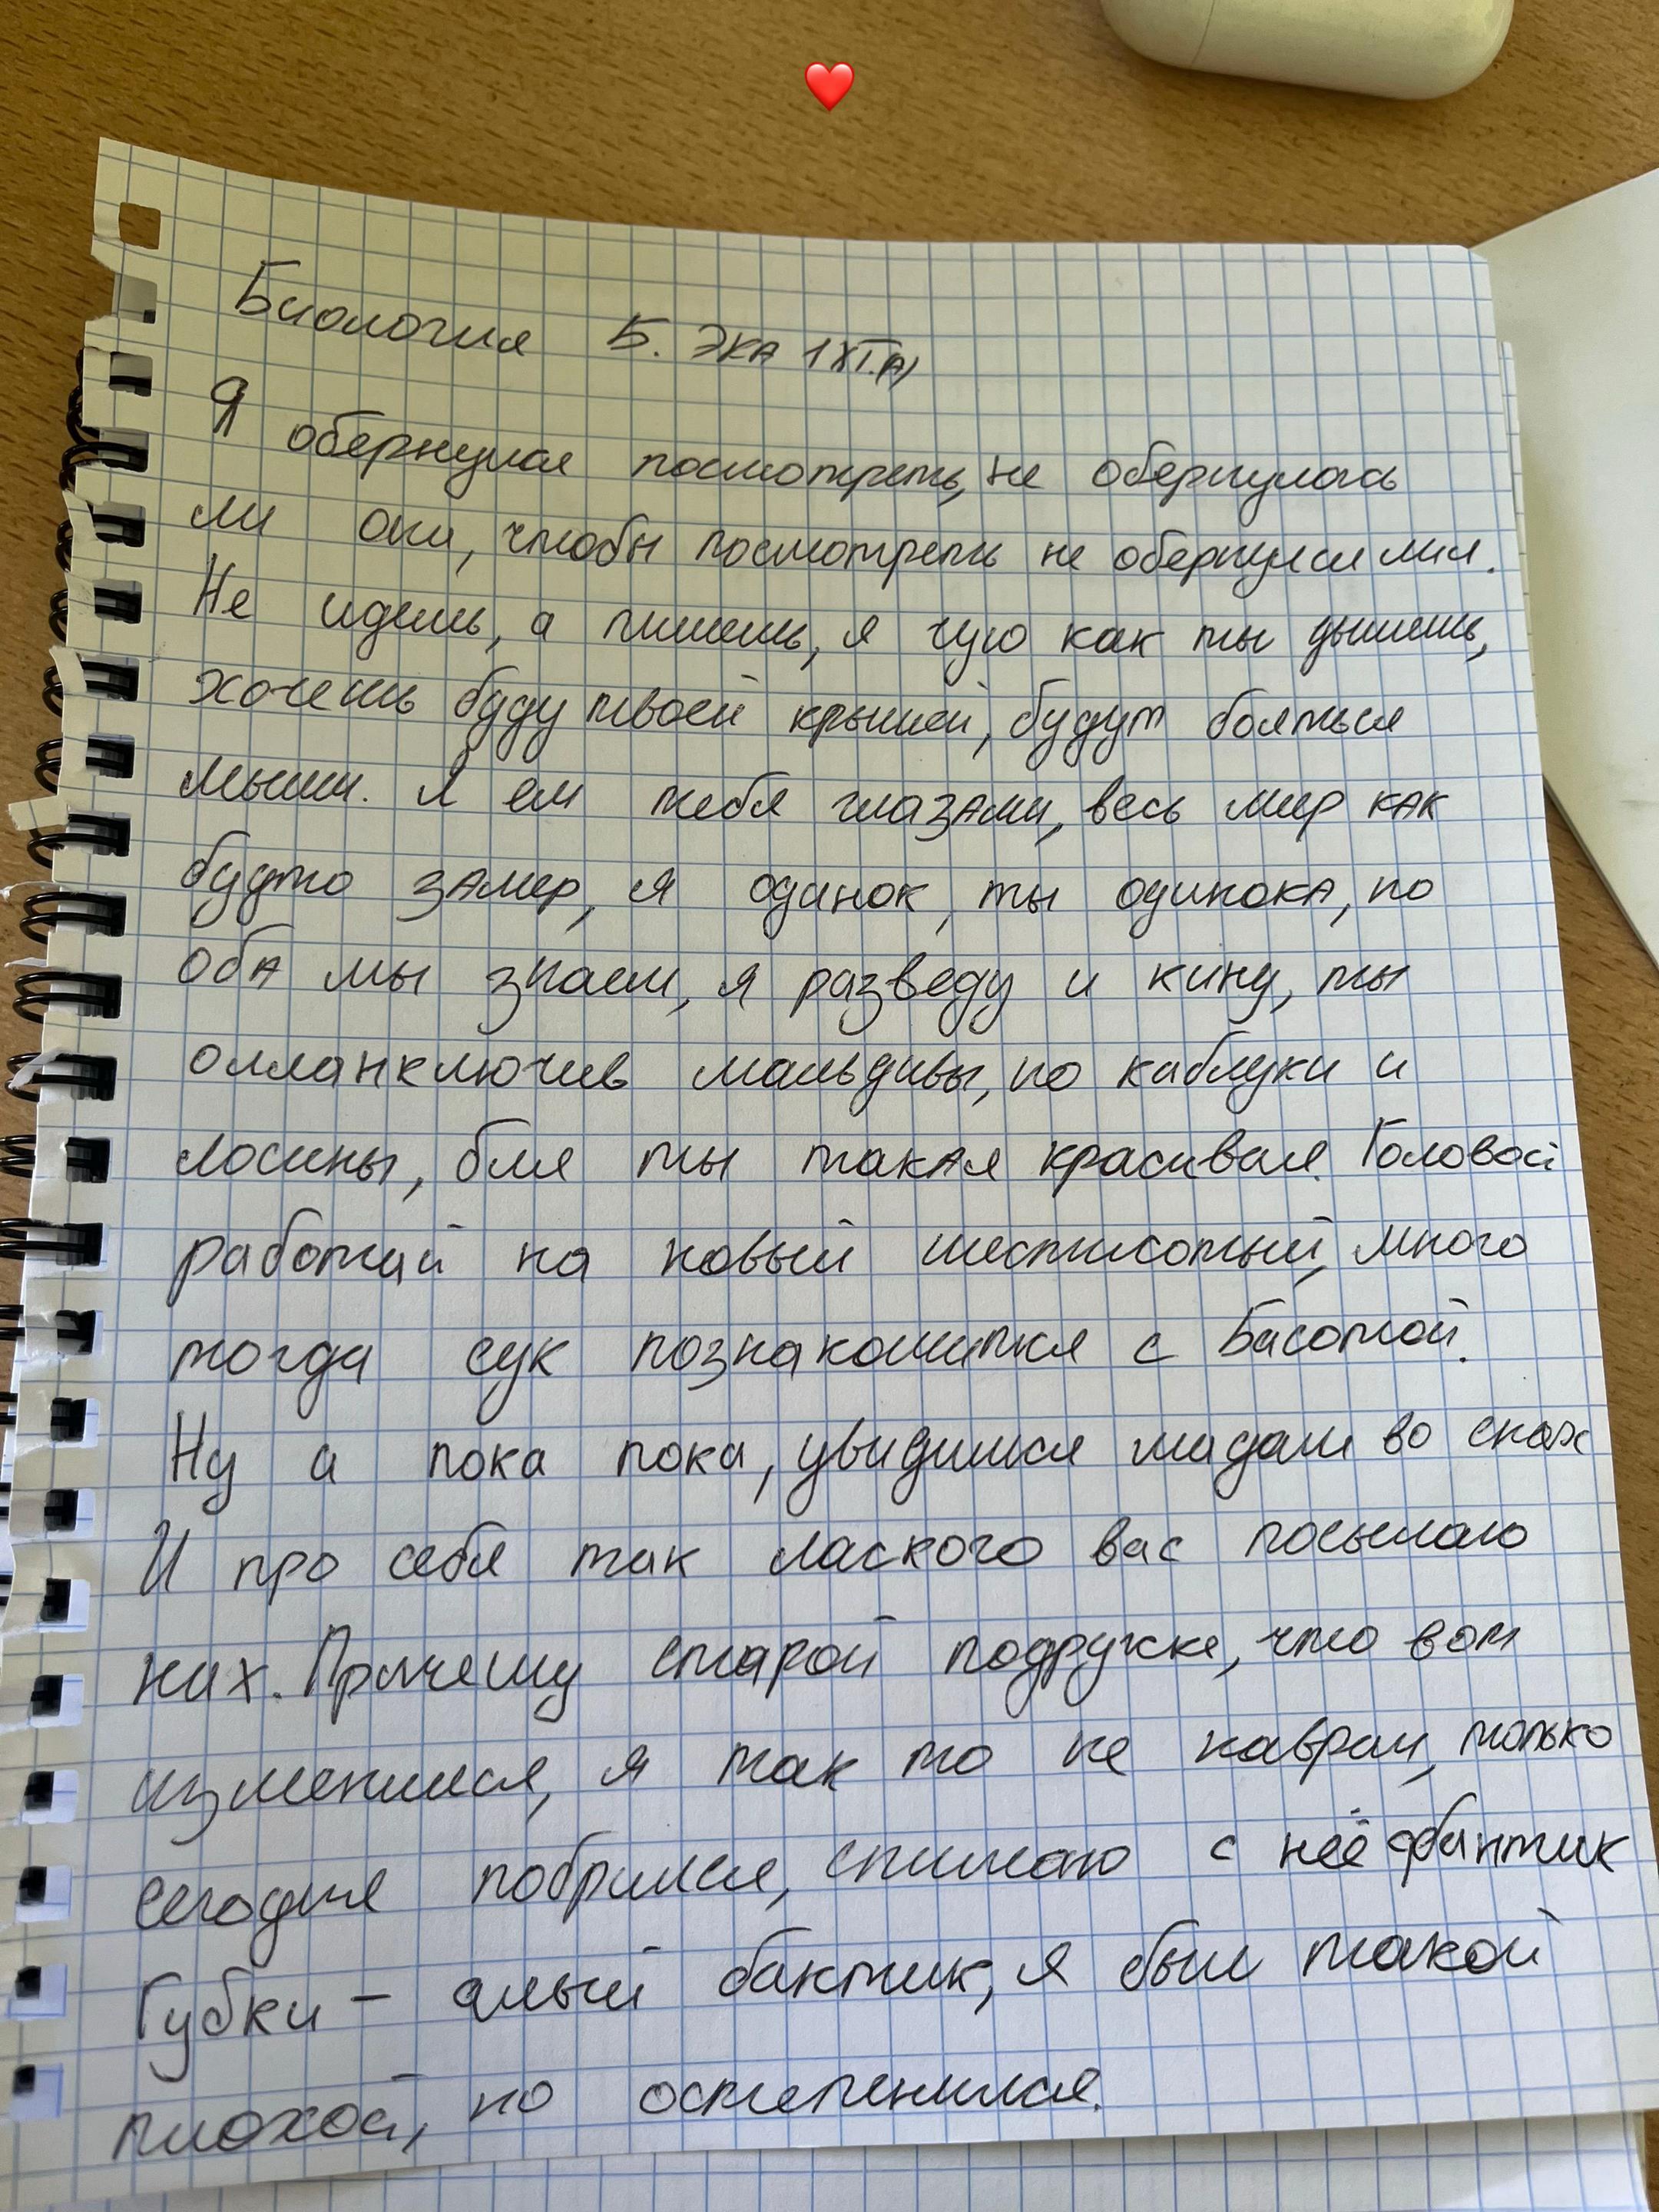 Биология Б. ЭКА 1 XI.А)
Я обернулся посмотреть, не обернулась
ли она, чтобы посмотреть не обернулся ли я.
Не идёшь, а пишешь, я чую как ты дышишь,
хочешь буду твоей крышей, будут бояться
мыши. Я ем тебя глазами, весь мир как
будто замер, я одинок, ты одинока, но
оба мы знаем, я разведу и кину, ты
олланключив мальдивы, но каблуки и
лосины, бля ты такая красивая. Головой
работай на новый шестисотый, много
тогда сук познакомится с Басотой.
Ну а пока пока, увидимся мадам во снах
И про себя так лаского вас посылаю
нах. Прячешу старой подружке, что вот
изменился, я так то не наврал, только
сегодня побрился, снимаю с неё фантик
Губки – алый бантик, я был такой
плохой, но остепенился.